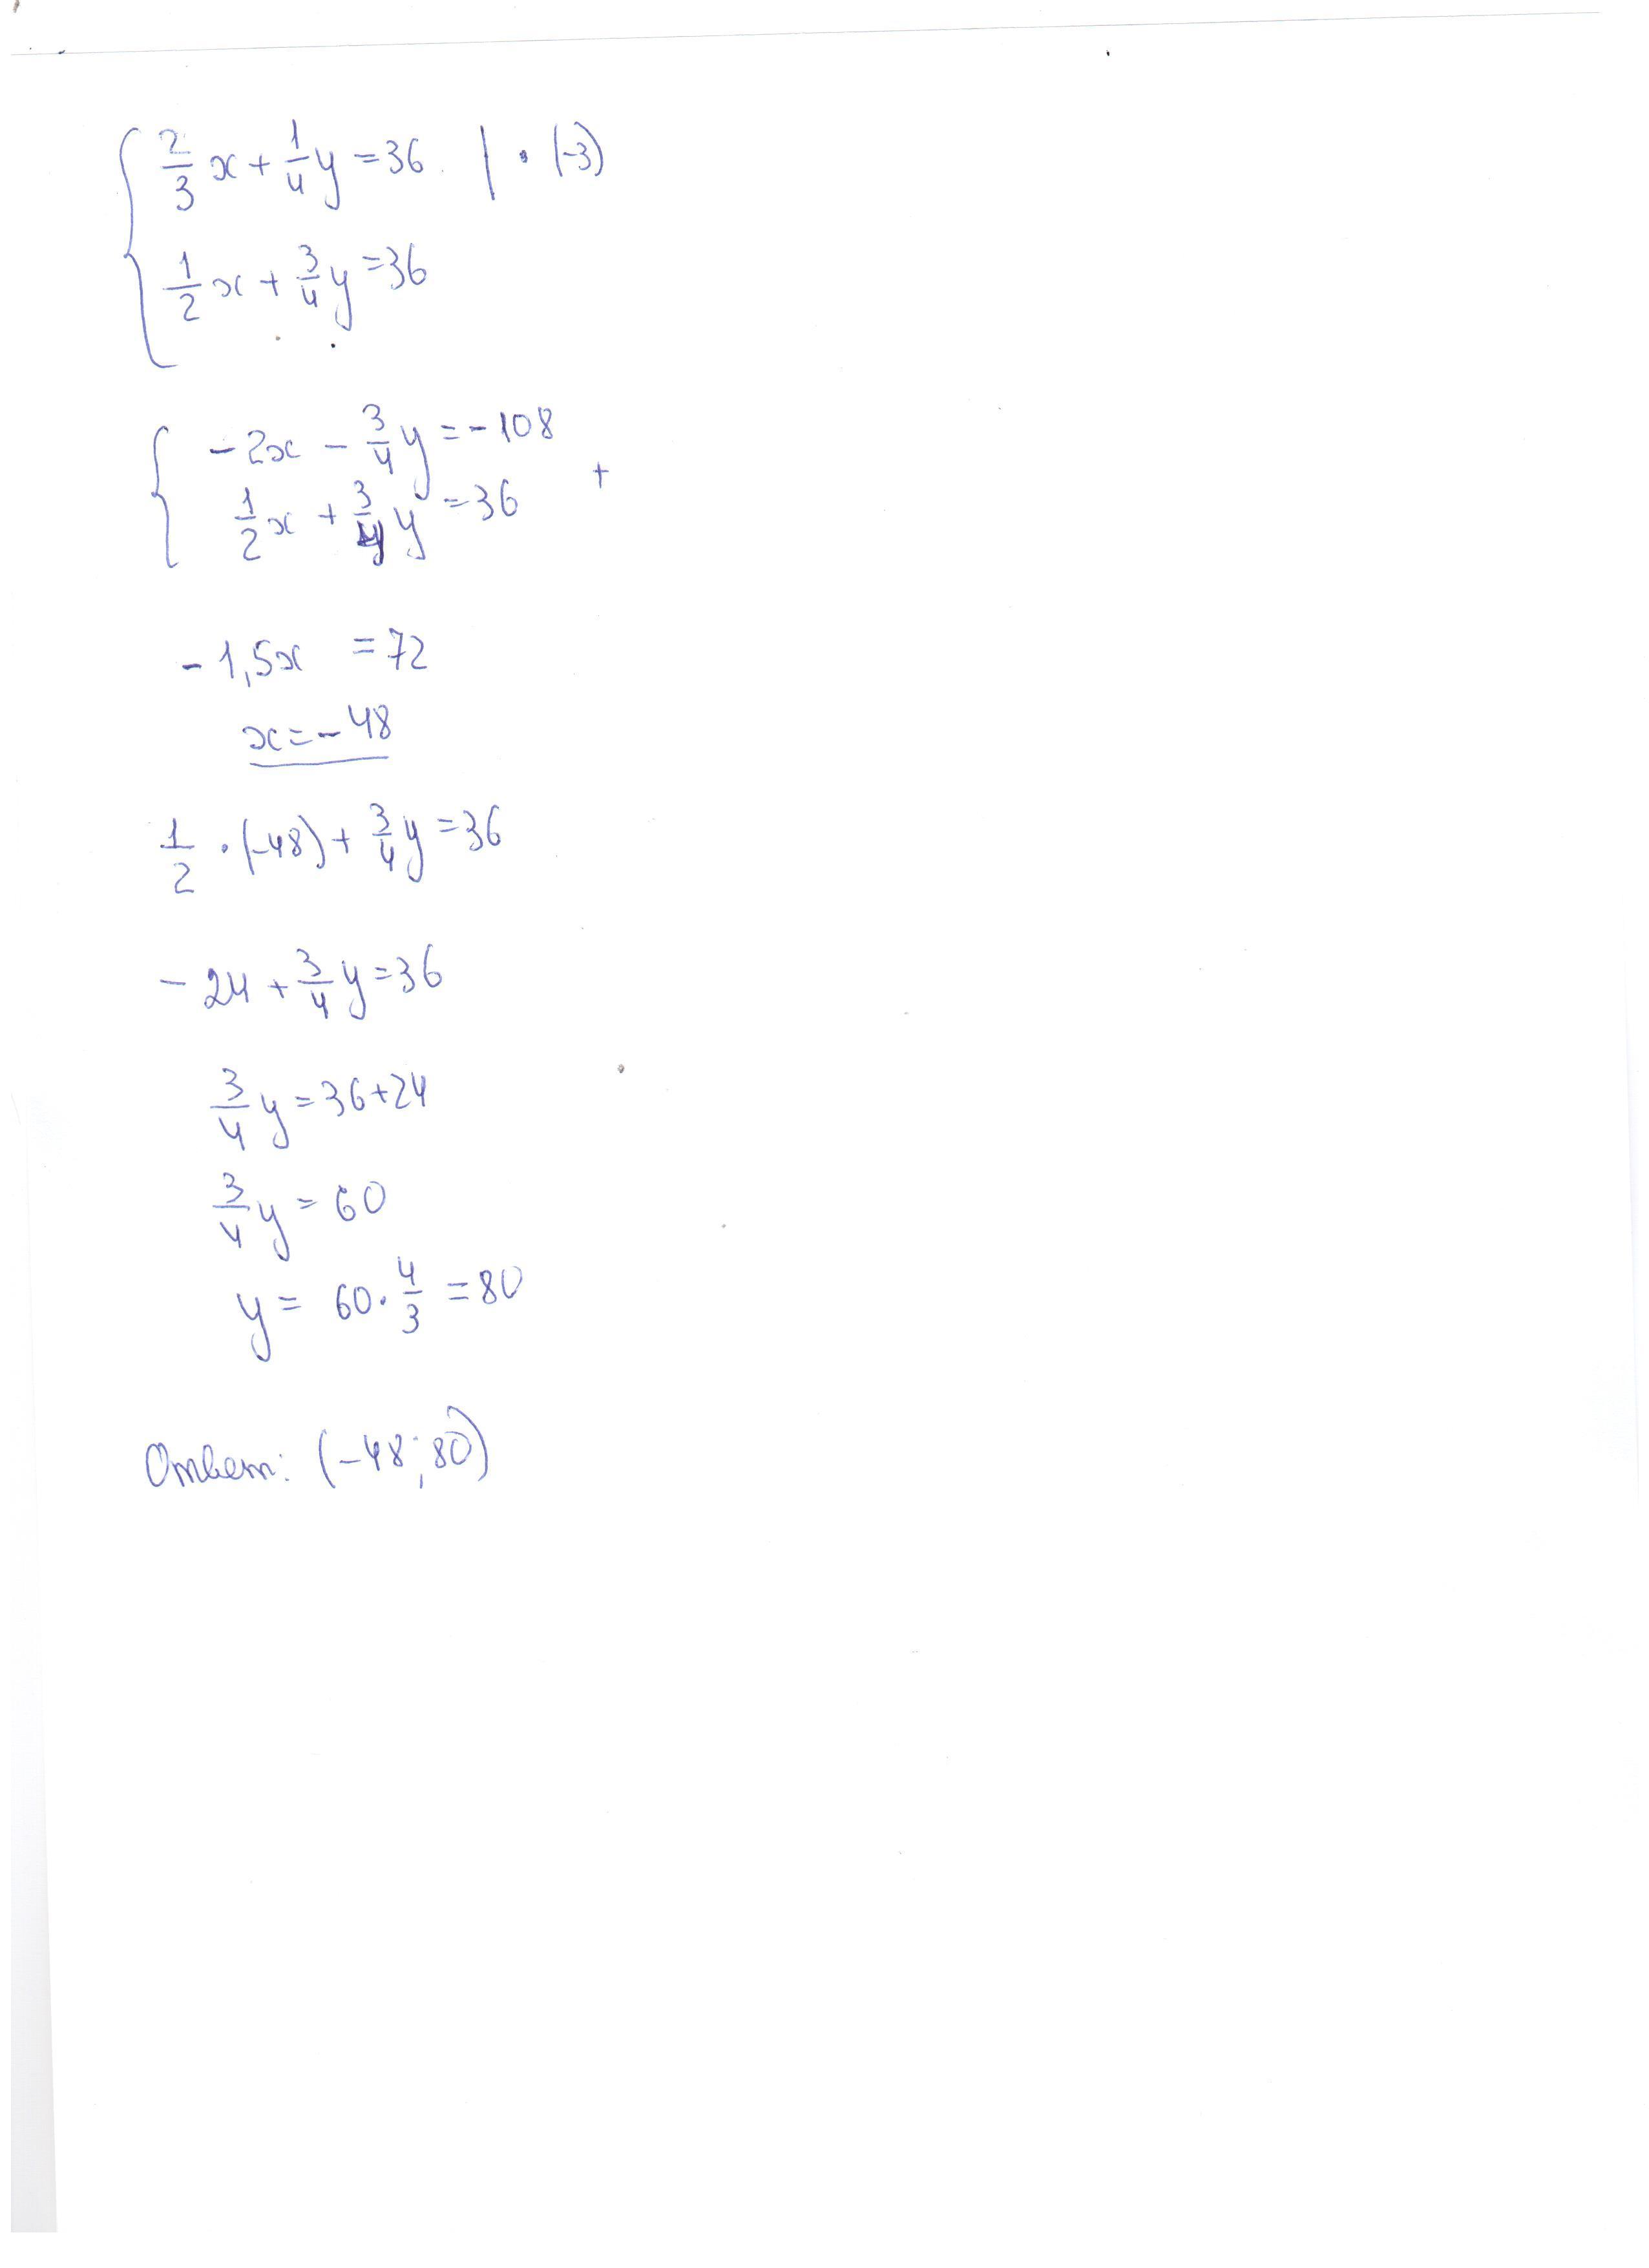 2/3 x + 1/4 y = 36 | · (-3)
1/2 x + 3/4 y = 36
-2x - 3/4 y = -108
1/2 x + 3/4 y = 36 +
-1,5x = 72
x = -48
1/2 · (-48) + 3/4 y = 36
-24 + 3/4 y = 36
3/4 y = 36 + 24
3/4 y = 60
y = 60 · 4/3 = 80
Ответ: (-48; 80)